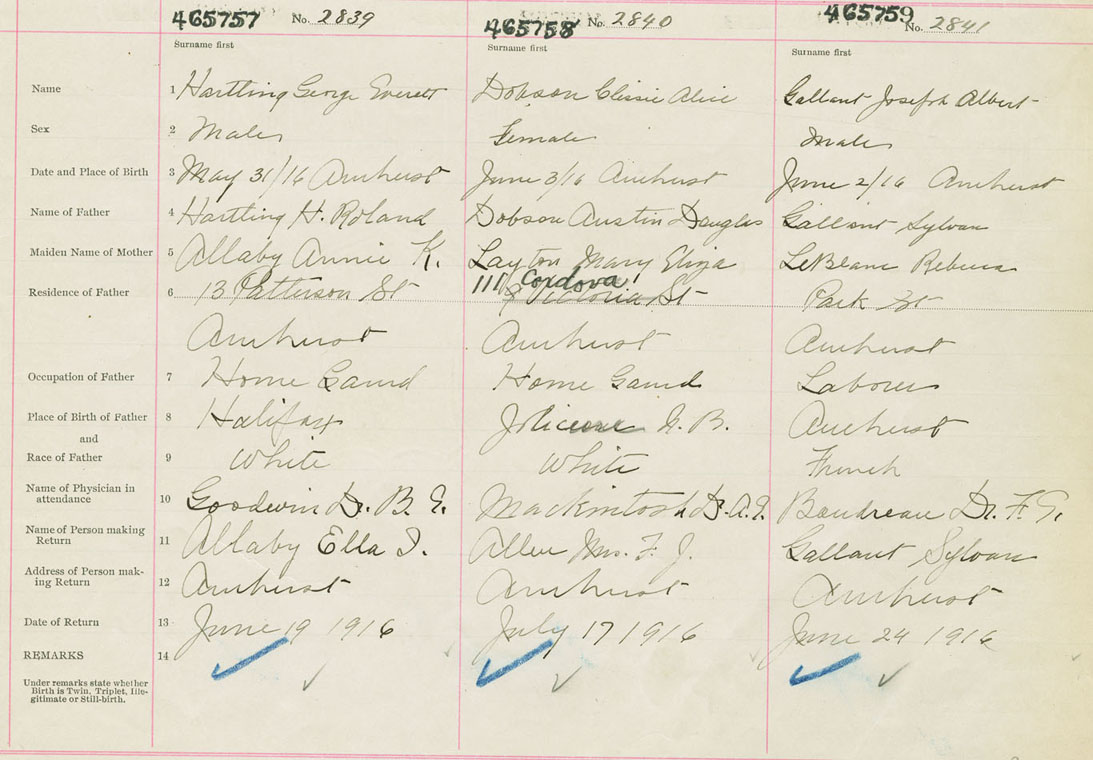 465757 No. 2839 465758 No. 2840 465759 No. 2841
Surname first Surname first Surname first
Name 1 Hartling George Everett Dobson Clissie Alice Gallant Joseph Albert
Sex 2 Male Female Male
Date and Place of Birth 3 May 31/16 Amherst June 3/16 Amherst June 2/16 Amherst
Name of Father 4 Hartling H. Roland Dobson Austin Douglas Gallant Sylvan
Maiden Name of Mother 5 Allaby Annie K. Layton Mary Eliza LeBlanc Rebecca
111 Cordova
Residence of Father 6 13 Patterson St Victoria St Park St
Amherst Amherst Amherst
Occupation of Father 7 Home Gaurd Home Gaurd Laborer
Place of Birth of Father 8 Halifax Jolicure N. B. Amherst
and
Race of Father 9 White White French
Name of Physician in
attendance 10 Goodwin Dr. B. E. Mackintosh Dr. A. Boudreau Dr. F.
Name of Person making
Return 11 Allaby Ella I. Allen Mrs. F. J. Gallant Sylvan
Address of Person mak-
ing Return 12 Amherst Amherst Amherst
Date of Return 13 June 19 1916 July 17 1916 June 24 1916
REMARKS 14
Under remarks state whether
Birth is Twin, Triplet, Ille-
gitimate or Still-birth.